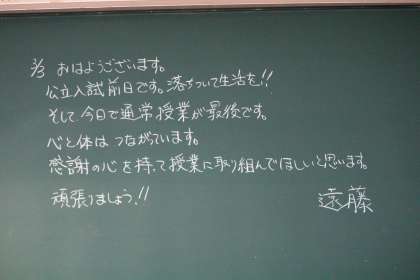 3/3 おはようございます。
公立入試前日です。落ちついて生活を!!
そして今日で通常授業が最後です。
心と体はつながっています。
感謝の心を持って授業に取り組んでほしいと思います。
頑張りましょう!!
遠藤